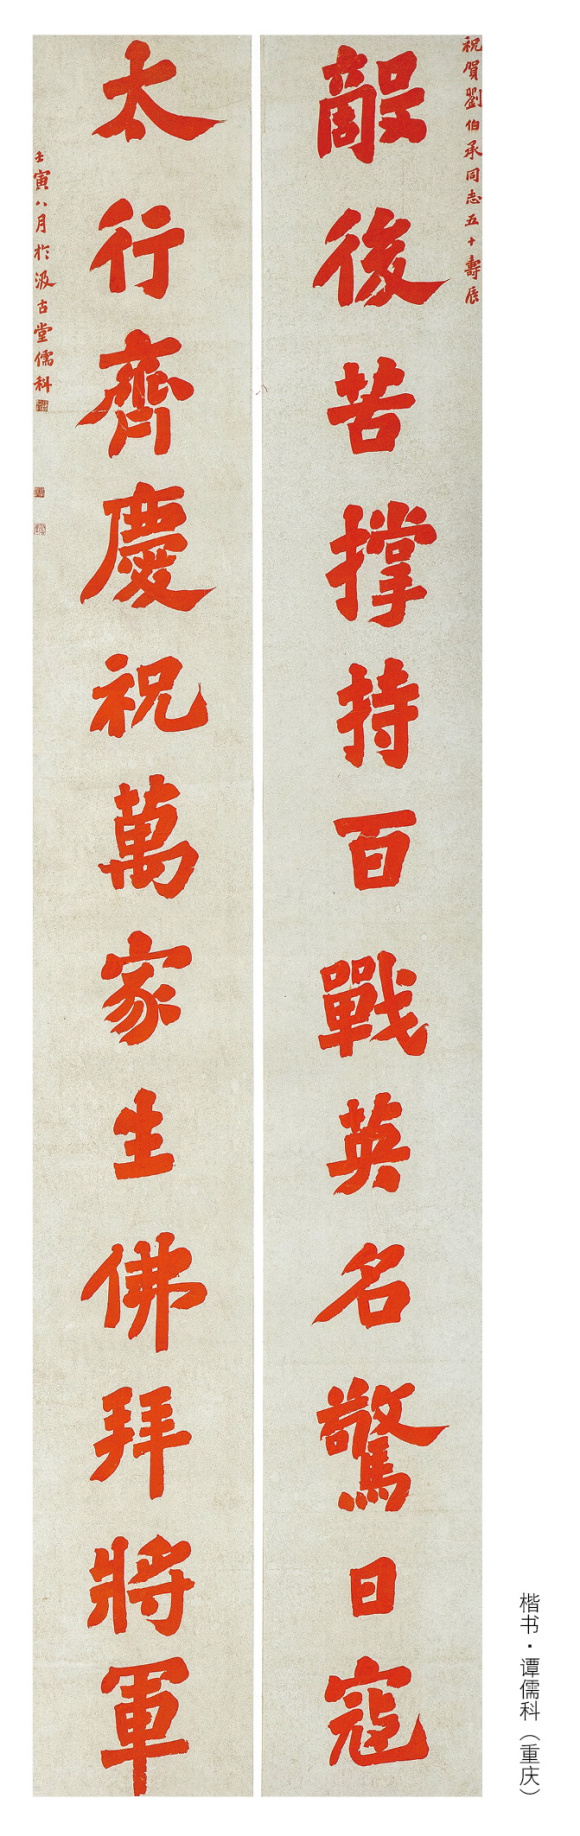 祝賀劉伯承同志五十壽辰
敵後苦撐持百戰英名驚日寇
太行齊慶祝萬家生佛拜將軍
壬寅八月於汲古堂儒科
楷书·谭儒科（重庆）